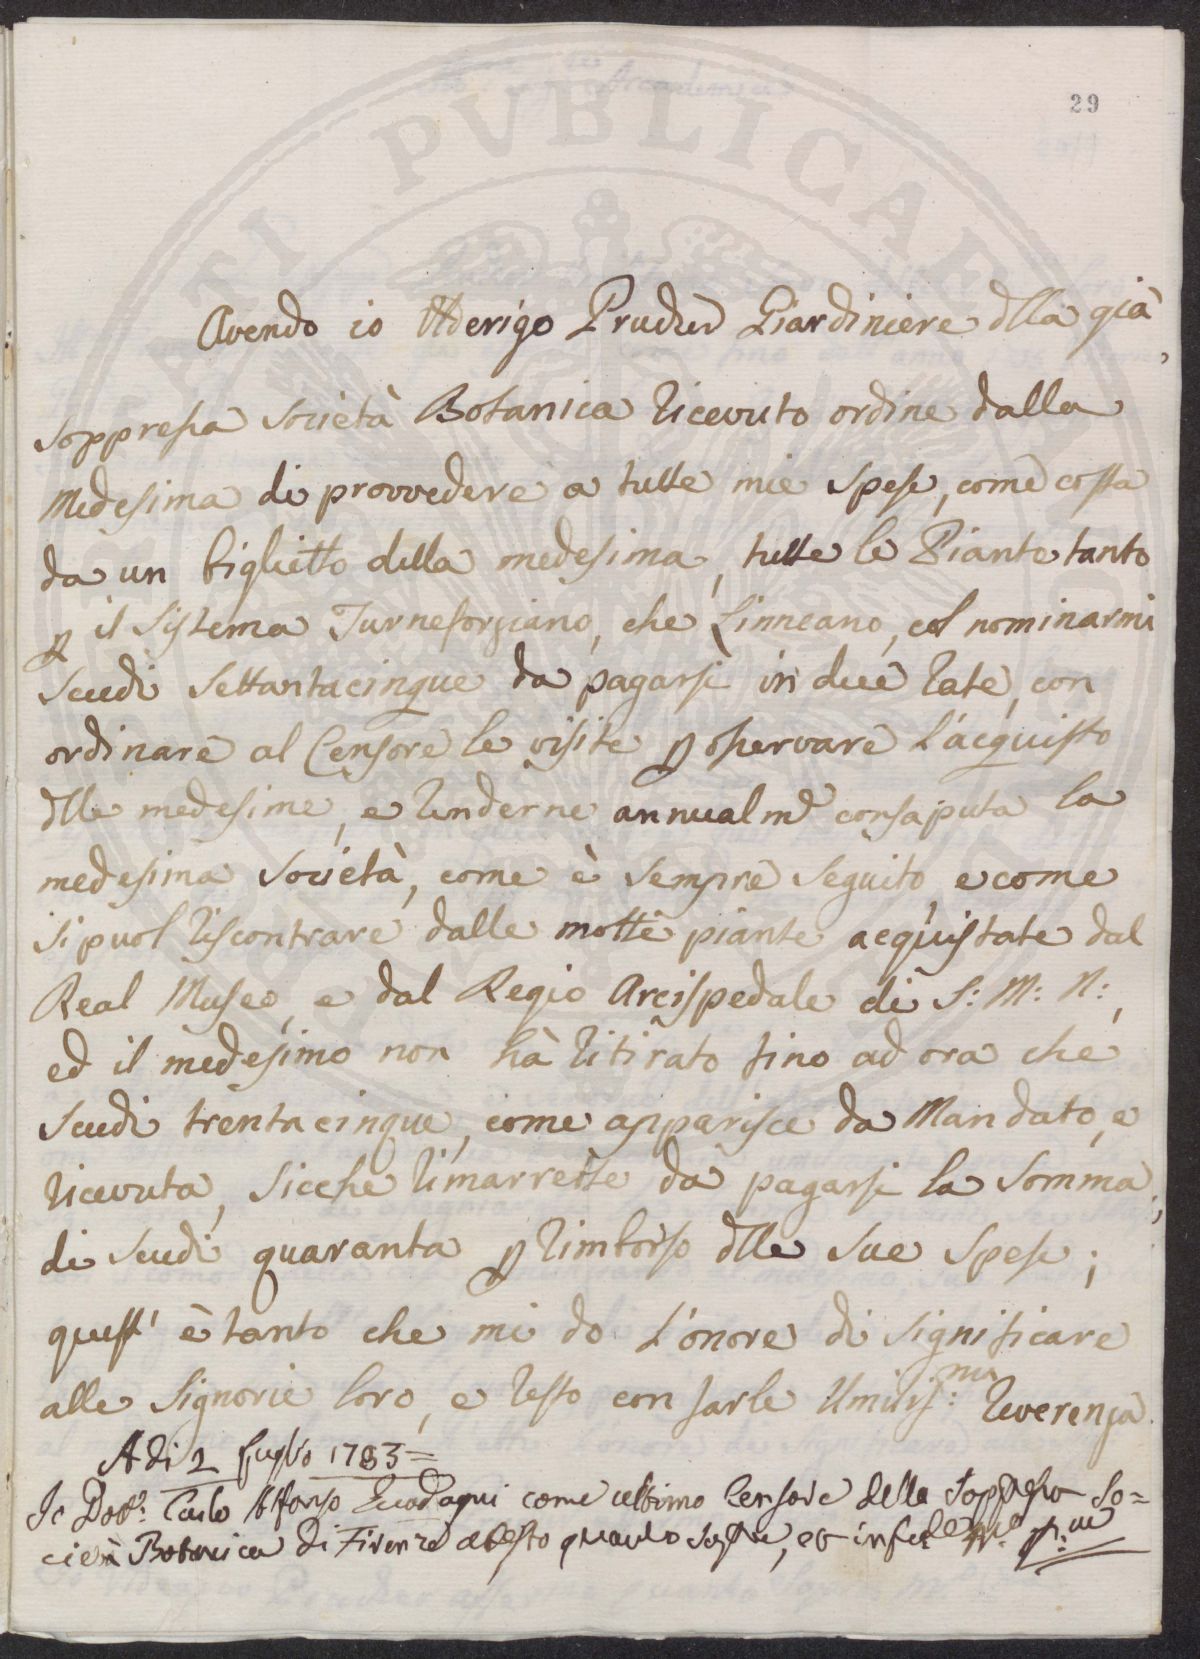 29
Avendo io Uderigo Prucher Giardiniere dlla già
soppressa Società Botanica ricevuto ordine dalla
Medesima di provvedere a tutte mie spese, come costa
da un biglietto della medesima, tutte le Piante tanto
p il Sistema Turneforziano, che Linneano, col nominarmi
Scudi Settantacinque da pagarsi in due rate, con
ordinare al Censore le visite p osservare l'acquisto
dlle medesime, e renderne annualme consaputa la
medesima Società, come è sempre seguito, e come
si puol riscontrare dalle molte piante acquistate dal
Real Museo, e dal Regio Arcispedale di S: M: N:,
ed il medesimo non hà ritirato fino ad ora che
Scudi trentacinque, come apparisce da Mandato, e
ricevuta, sicche rimarrette da pagarsi la Somma
di Scudi quaranta p rimborso dlle sue spese;
quest' è tanto che mi do l'onore di significare
alle Signorie loro, e resto con farle Umilis:ma Reverenza.
Adi 2 Luglio 1783=
Io Dott: Carlo Alfonso Guadagni come ultimo Censore della Soppressa So=
cietà Botanica di Firenze attesto quanto sopra, et in fede Mo. pa.
PVBLICAE